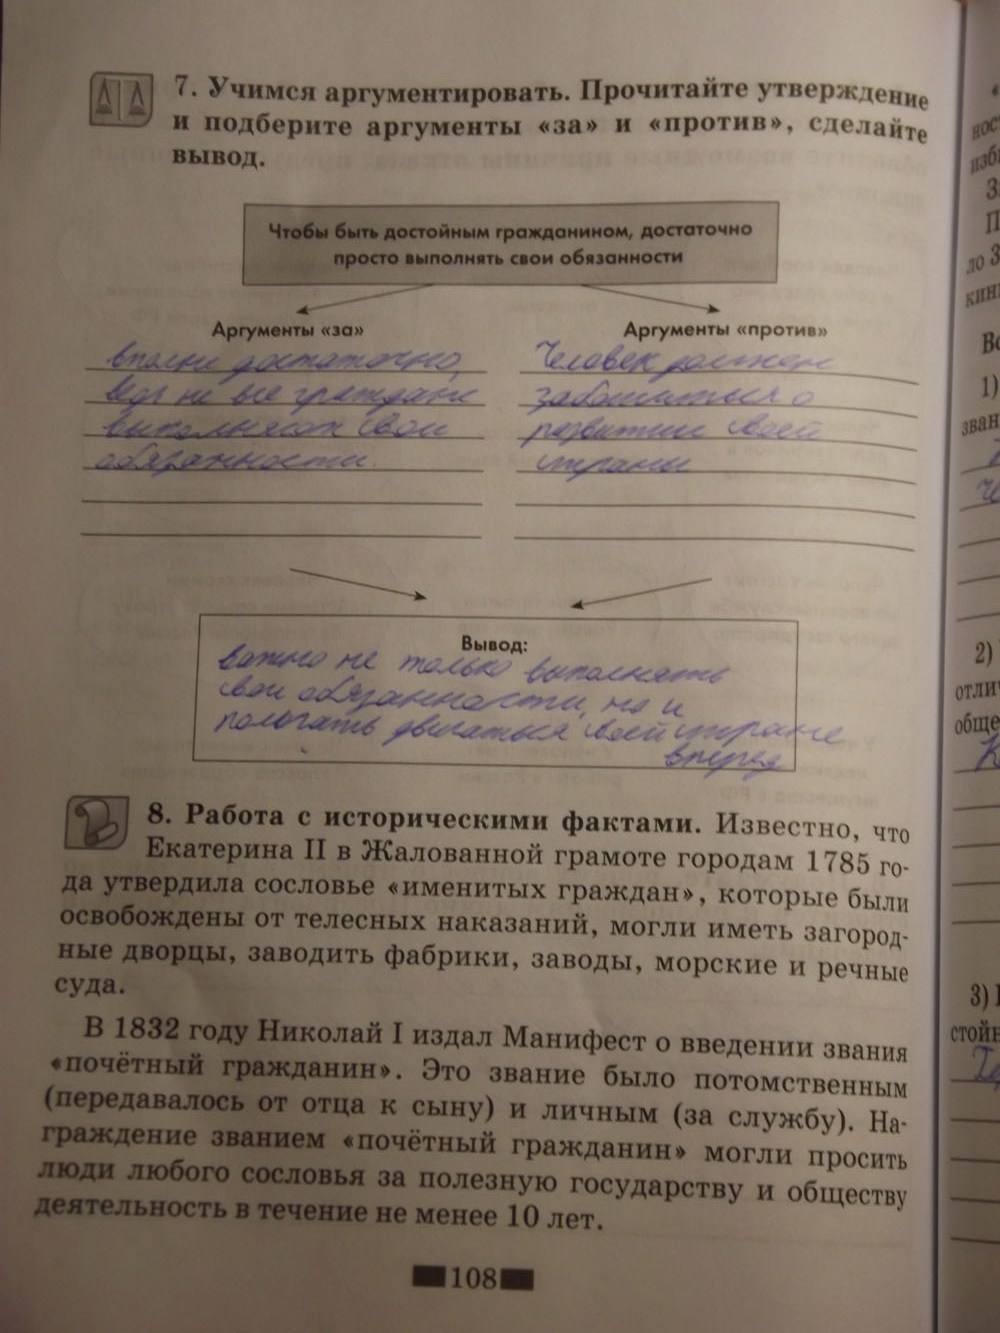 7. Учимся аргументировать. Прочитайте утверждение
и подберите аргументы «за» и «против», сделайте
вывод.
Чтобы быть достойным гражданином, достаточно
просто выполнять свои обязанности
Аргументы «за»
вполни достаточно,
ведь не все граждане
выполняют свои
обязанности.
Аргументы «против»
Человек должен
заботиться о
развитии своей
страны
Вывод:
важно не только выполнять
свои обязанности, но и
помогать двигаться своей стране
вперед
8. Работа с историческими фактами. Известно, что
Екатерина II в Жалованной грамоте городам 1785 го-
да утвердила сословье «именитых граждан», которые были
освобождены от телесных наказаний, могли иметь загород-
ные дворцы, заводить фабрики, заводы, морские и речные
суда.
В 1832 году Николай I издал Манифест о введении звания
«почётный гражданин». Это звание было потомственным
(передавалось от отца к сыну) и личным (за службу). На-
граждение званием «почётный гражданин» могли просить
люди любого сословья за полезную государству и обществу
деятельность в течение не менее 10 лет.
108
1)
2)
3)